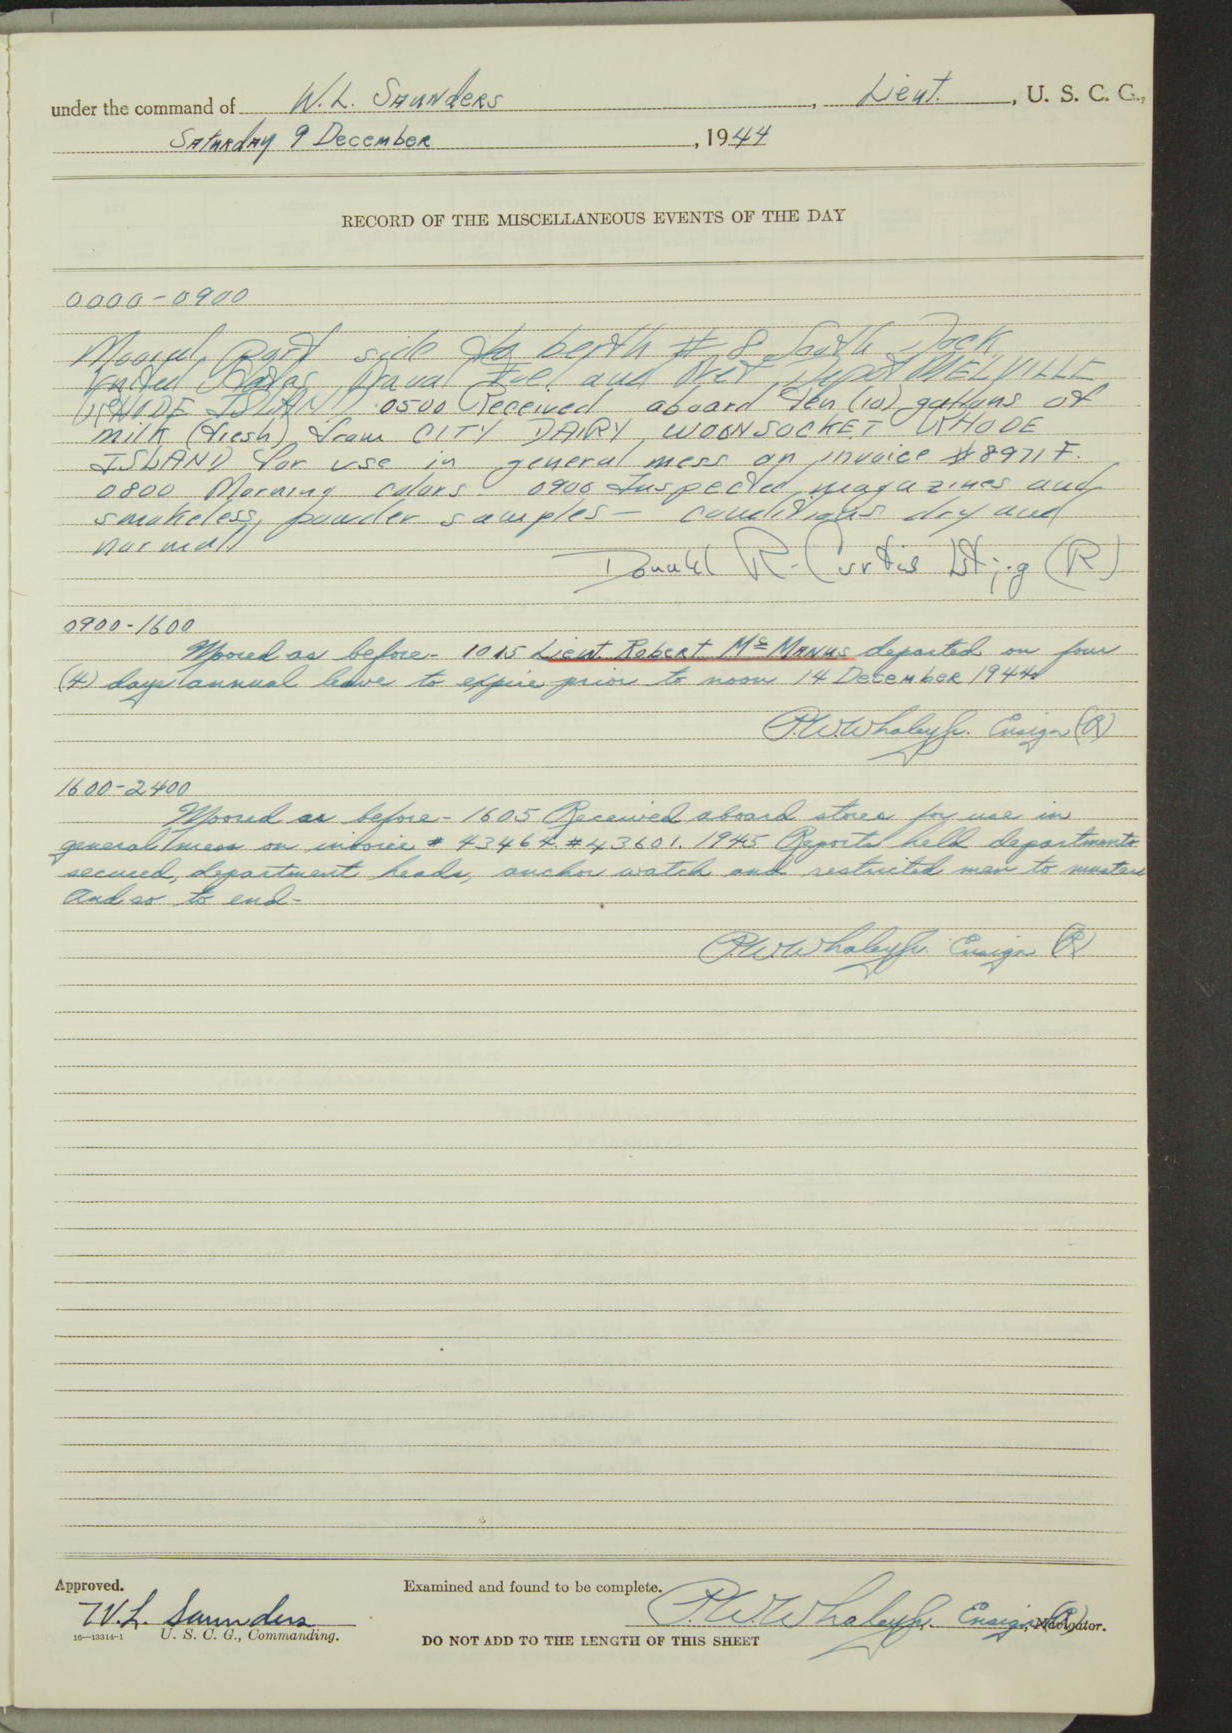 under the command of W. L. Saunders, Lieut., U. S. C. G.,
Saturday 9 December, 1944
RECORD OF THE MISCELLANEOUS EVENTS OF THE DAY
0000-0900
Moored, port side to berth # 8 South Dock
United States Naval Fuel and Net Depot MELVILLE
RHODE ISLAND. 0500 Received aboard ten (10) gallons of
milk (fresh) from CITY DAIRY, WOONSOCKET RHODE
ISLAND for use in general mess on invoice #8971F.
0800 Morning colors. 0900 Inspected magazines and
smokeless powder samples - conditions dry and
normal
Donald R. Curtis Lt.j.g (R)
0900-1600
Moored as before - 1015 Lieut. Robert McManus departed on four
(4) days annual leave to expire prior to noon 14 December 1944
P.W. Whaley Jr. Ensign (R)
1600-2400
Moored as before - 1605 Received aboard stores for use in
general mess on invoice # 43464. #43601. 1945 Reports held departments
secured, department heads, anchor watch and restricted men to muster
And so to end -
P.W. Whaley Jr. Ensign (R)
Approved. Examined and found to be complete.
W. L. Saunders P.W. Whaley Jr. Ensign (R), Navigator.
16-13314-1 U. S. C. G., Commanding.
DO NOT ADD TO THE LENGTH OF THIS SHEET